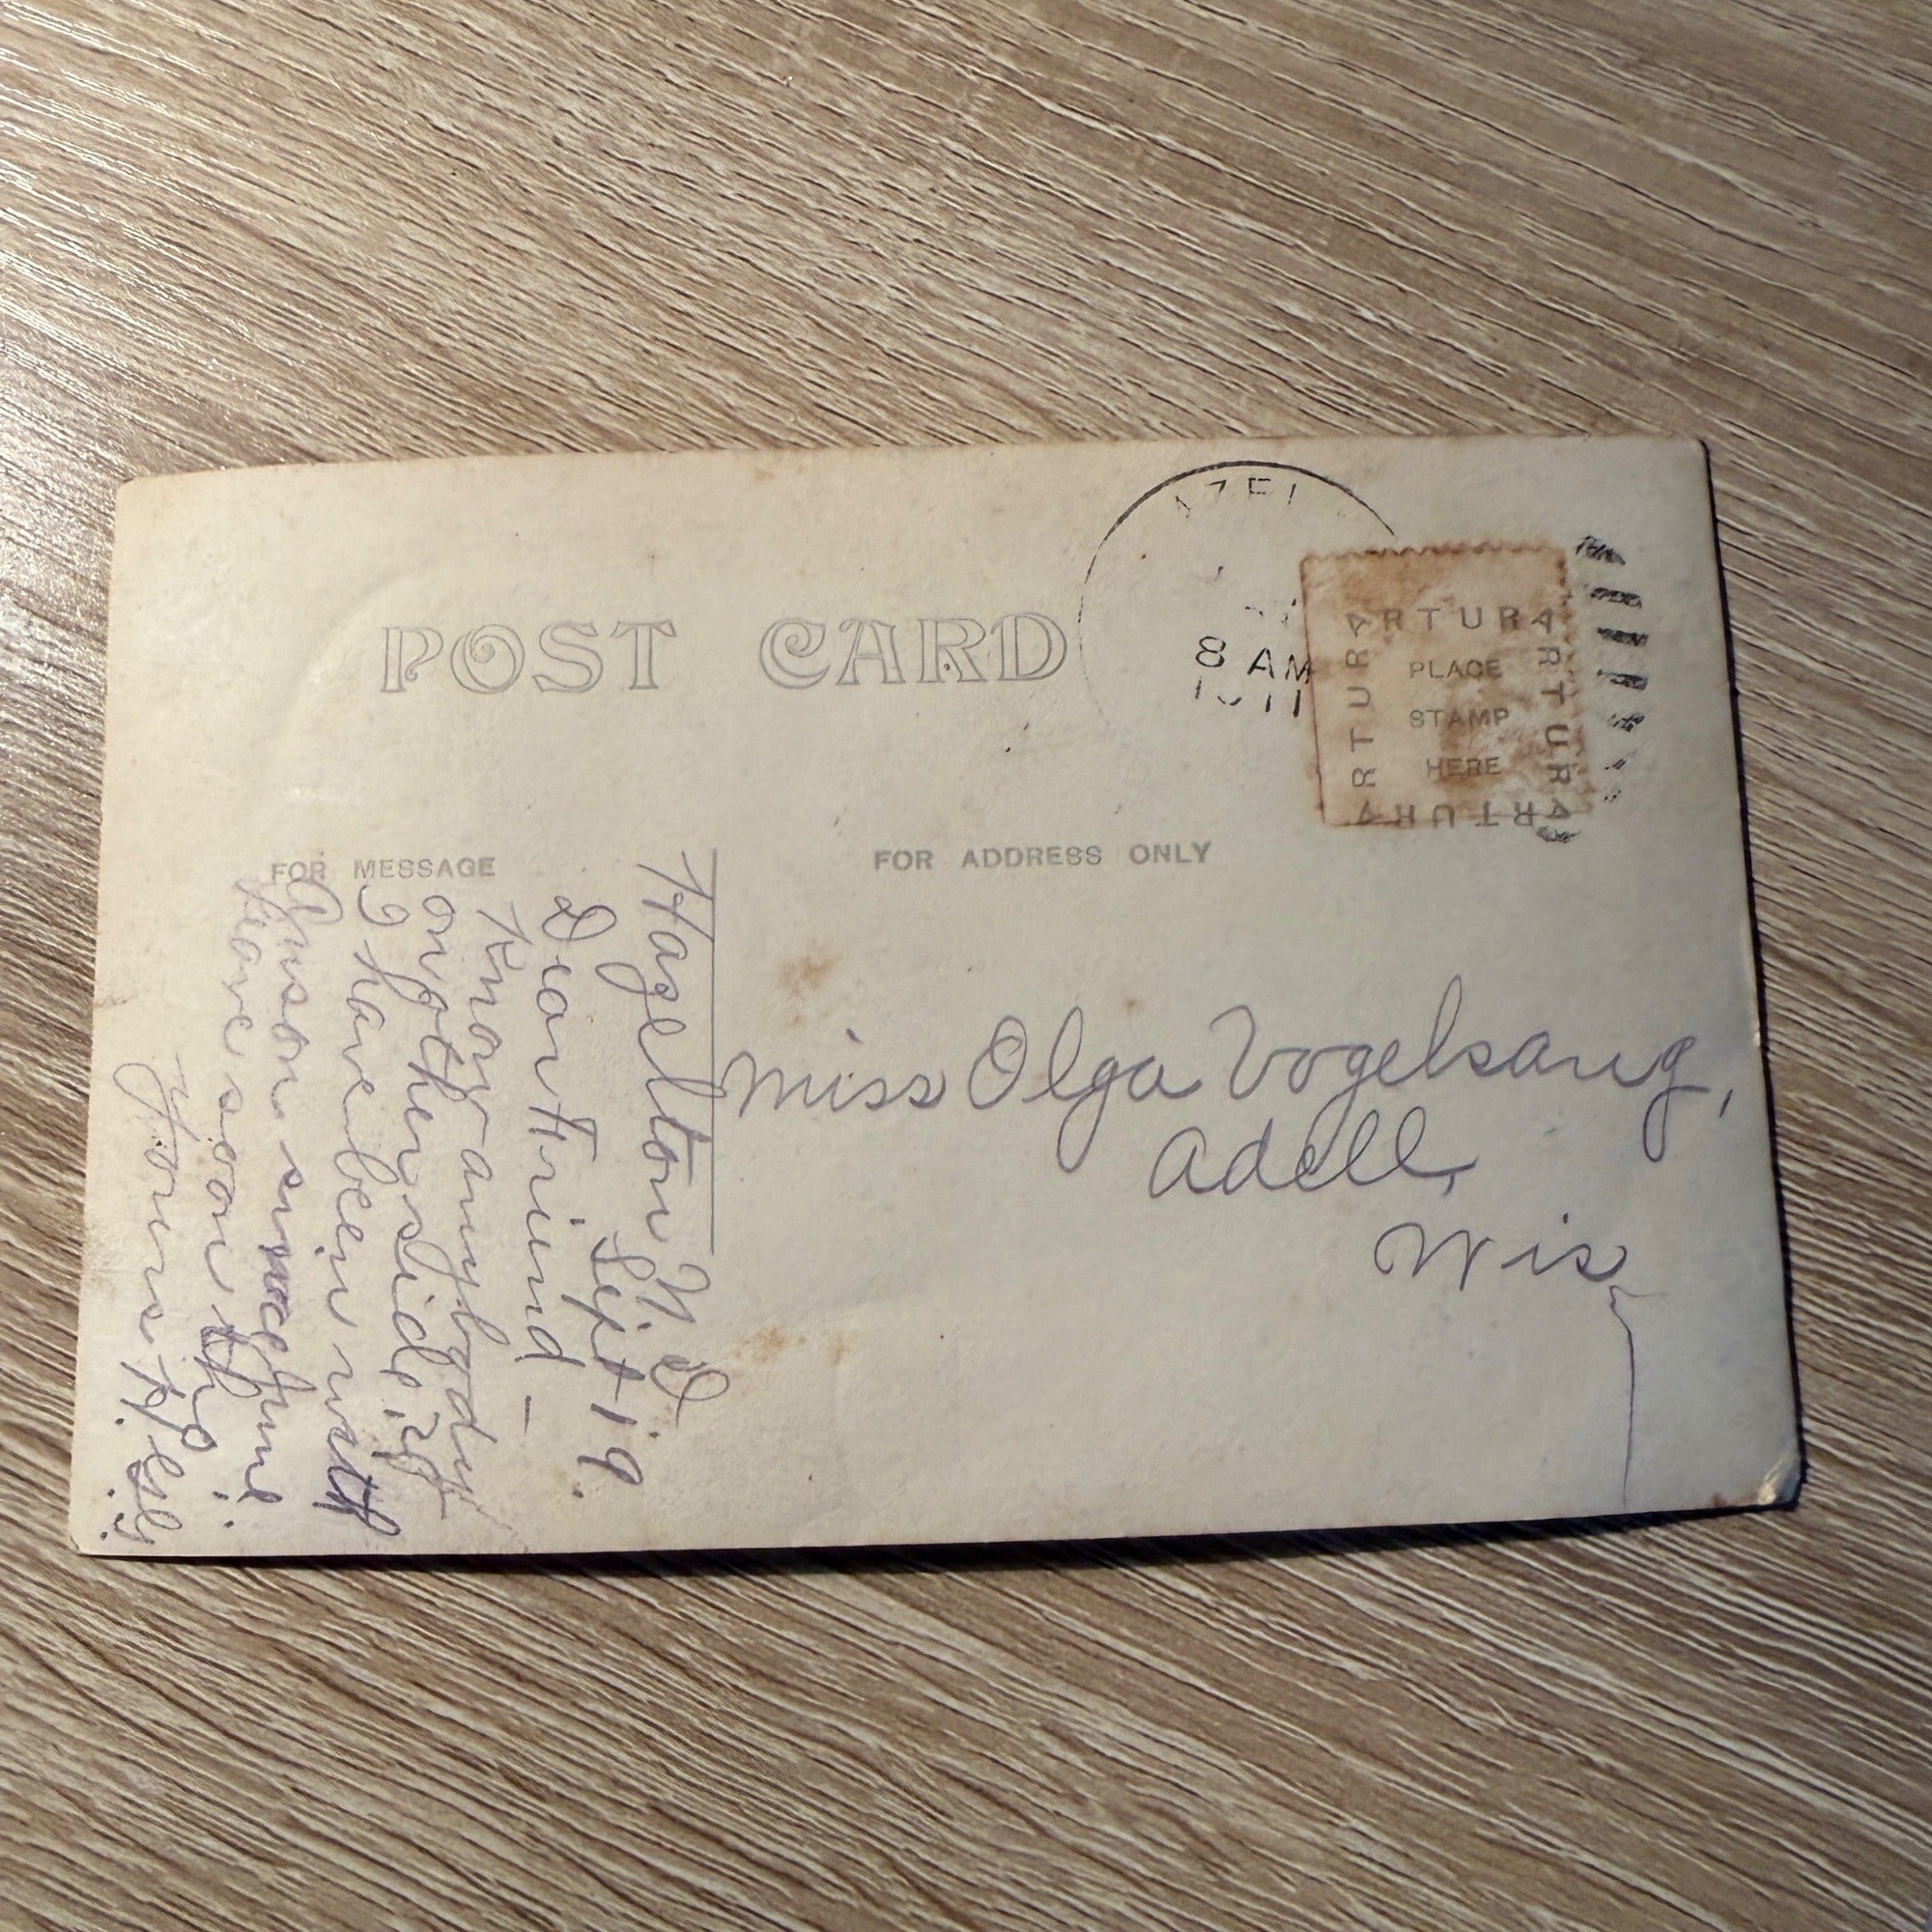 POST CARD
AZEL
8 AM
1911
ARTURA
ARTURA
ARTURA
ARTURA
PLACE
STAMP
HERE
FOR MESSAGE
FOR ADDRESS ONLY
Hazelton N D
Sept 19.
Dear Friend –
Know anybody
on other side?
I have been with
soon since June.
have soon the
Yours H.
Miss Olga Vogelsang,
Adell,
Wis